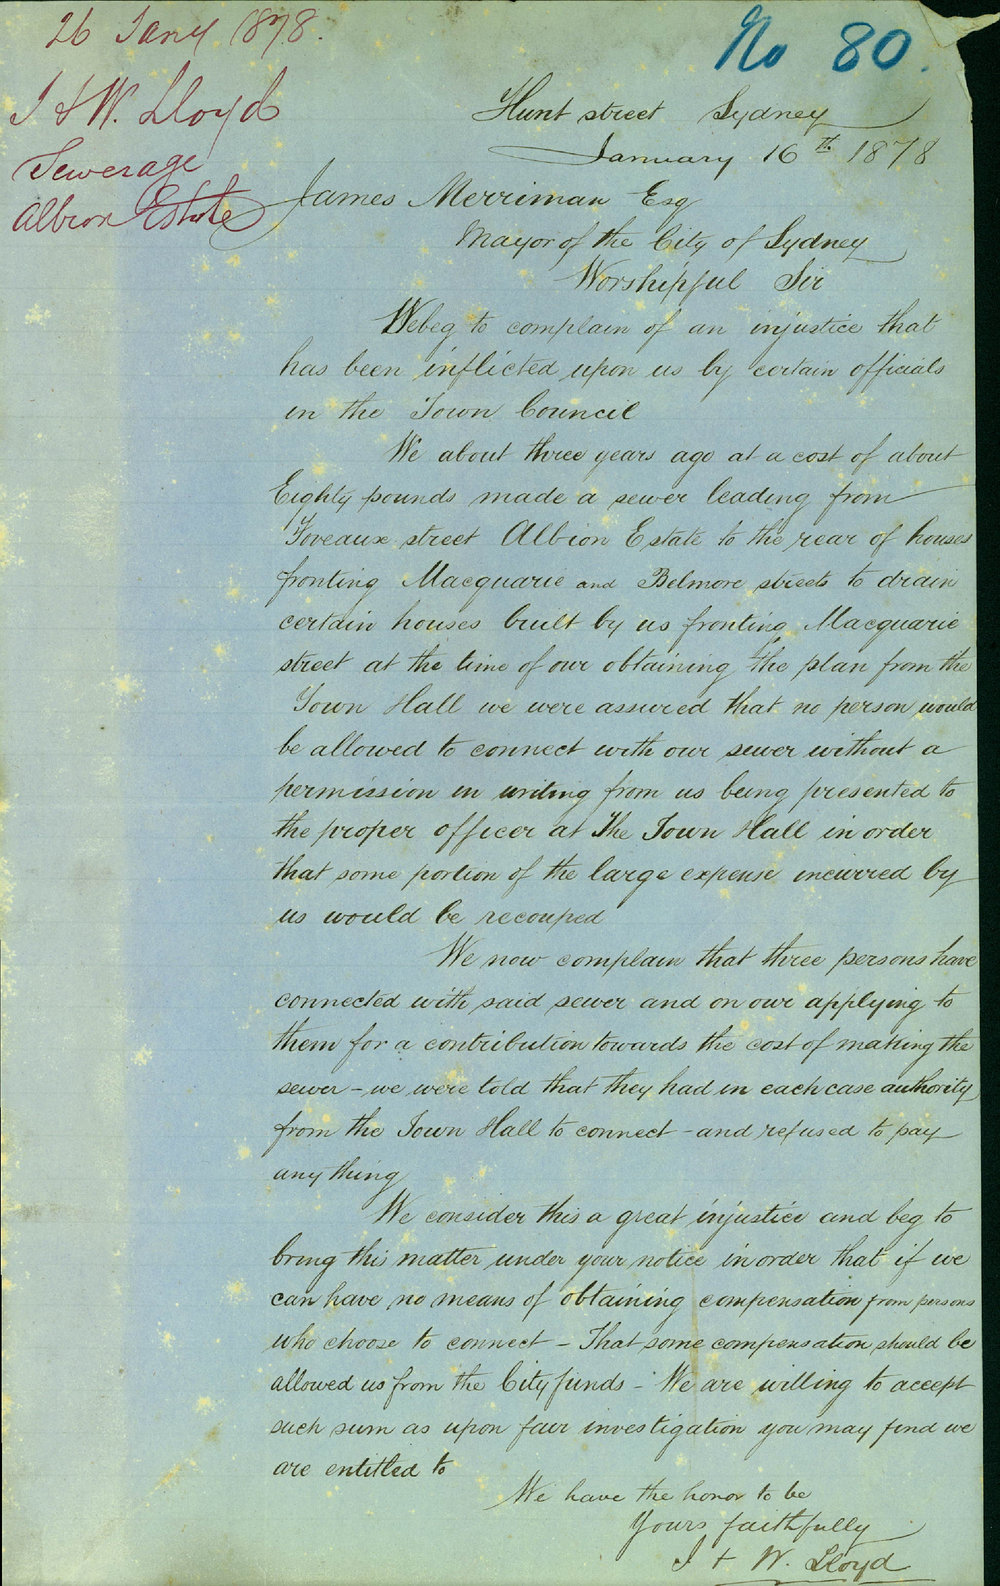 26 Jany 1878.
No 80.
J & W. Lloyd
Sewerage
Albion Estate
Hunt street Sydney
January 16th 1878
James Merriman Esq
Mayor of the City of Sydney
Worshipful Sir
We beg to complain of an injustice that
has been inflicted upon us by certain officials
in the Town Council
We about three years ago at a cost of about
Eighty pounds made a sewer leading from
Foveaux street Albion Estate to the rear of houses
fronting Macquarie and Belmore streets to drain
certain houses built by us fronting Macquarie
street at the time of our obtaining the plan from the
Town Hall we were assured that no person would
be allowed to connect with our sewer without a
permission in writing from us being presented to
the proper officer at The Town Hall in order
that some portion of the large expense incurred by
us would be recouped
We now complain that three persons have
connected with said sewer and on our applying to
them for a contribution towards the cost of making the
sewer - we were told that they had in each case authority
from the Town Hall to connect - and refused to pay
any thing
We consider this a great injustice and beg to
bring this matter under your notice in order that if we
can have no means of obtaining compensation from persons
who choose to connect - That some compensation should be
allowed us from the City funds - We are willing to accept
such sum as upon fair investigation you may find we
are entitled to
We have the honor to be
Yours faithfully
J & W. Lloyd